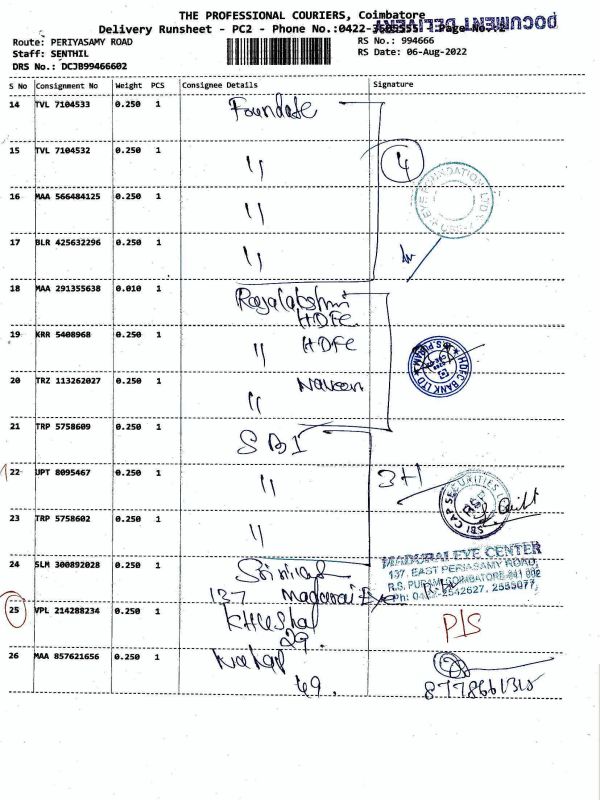 THE PROFESSIONAL COURIERS, Coimbatore
DOCUMENT DELIVERY
Delivery Runsheet - PC2 - Phone No.:0422- Page No.:2
Route: PERIYASAMY ROAD
RS No.: 994666
Staff: SENTHIL
RS Date: 06-Aug-2022
DRS No.: DCJB99466602
S No Consignment No Weight PCS Consignee Details Signature
14 TVL 7104533 0.250 1
15 TVL 7104532 0.250 1 " 4
EYE FOUNDATION LTD
16 MAA 566484125 0.250 1 "
17 BLR 425632296 0.250 1 "
18 MAA 291355638 0.010 1 Rajalakshmi
HDFC
19 KRR 5408968 0.250 1 " HDFC
HDFC BANK LTD
R.S. PURAM
20 TRZ 113262027 0.250 1 " Naveen
21 TRP 5758609 0.250 1 SBI
22 UPT 8095467 0.250 1 " 3+1
SBI CAP SECURITIES
23 TRP 5758602 0.250 1 "
24 SLM 300892028 0.250 1
MADURAI EYE CENTER
137, EAST PERIASAMY ROAD,
R.S. PURAM, COIMBATORE-641 002
Ph: 0422-2542627, 2555077
137 Madurai Eye
25 VPL 214288234 0.250 1 Khushal
29. P/S
26 MAA 857621656 0.250 1
49.